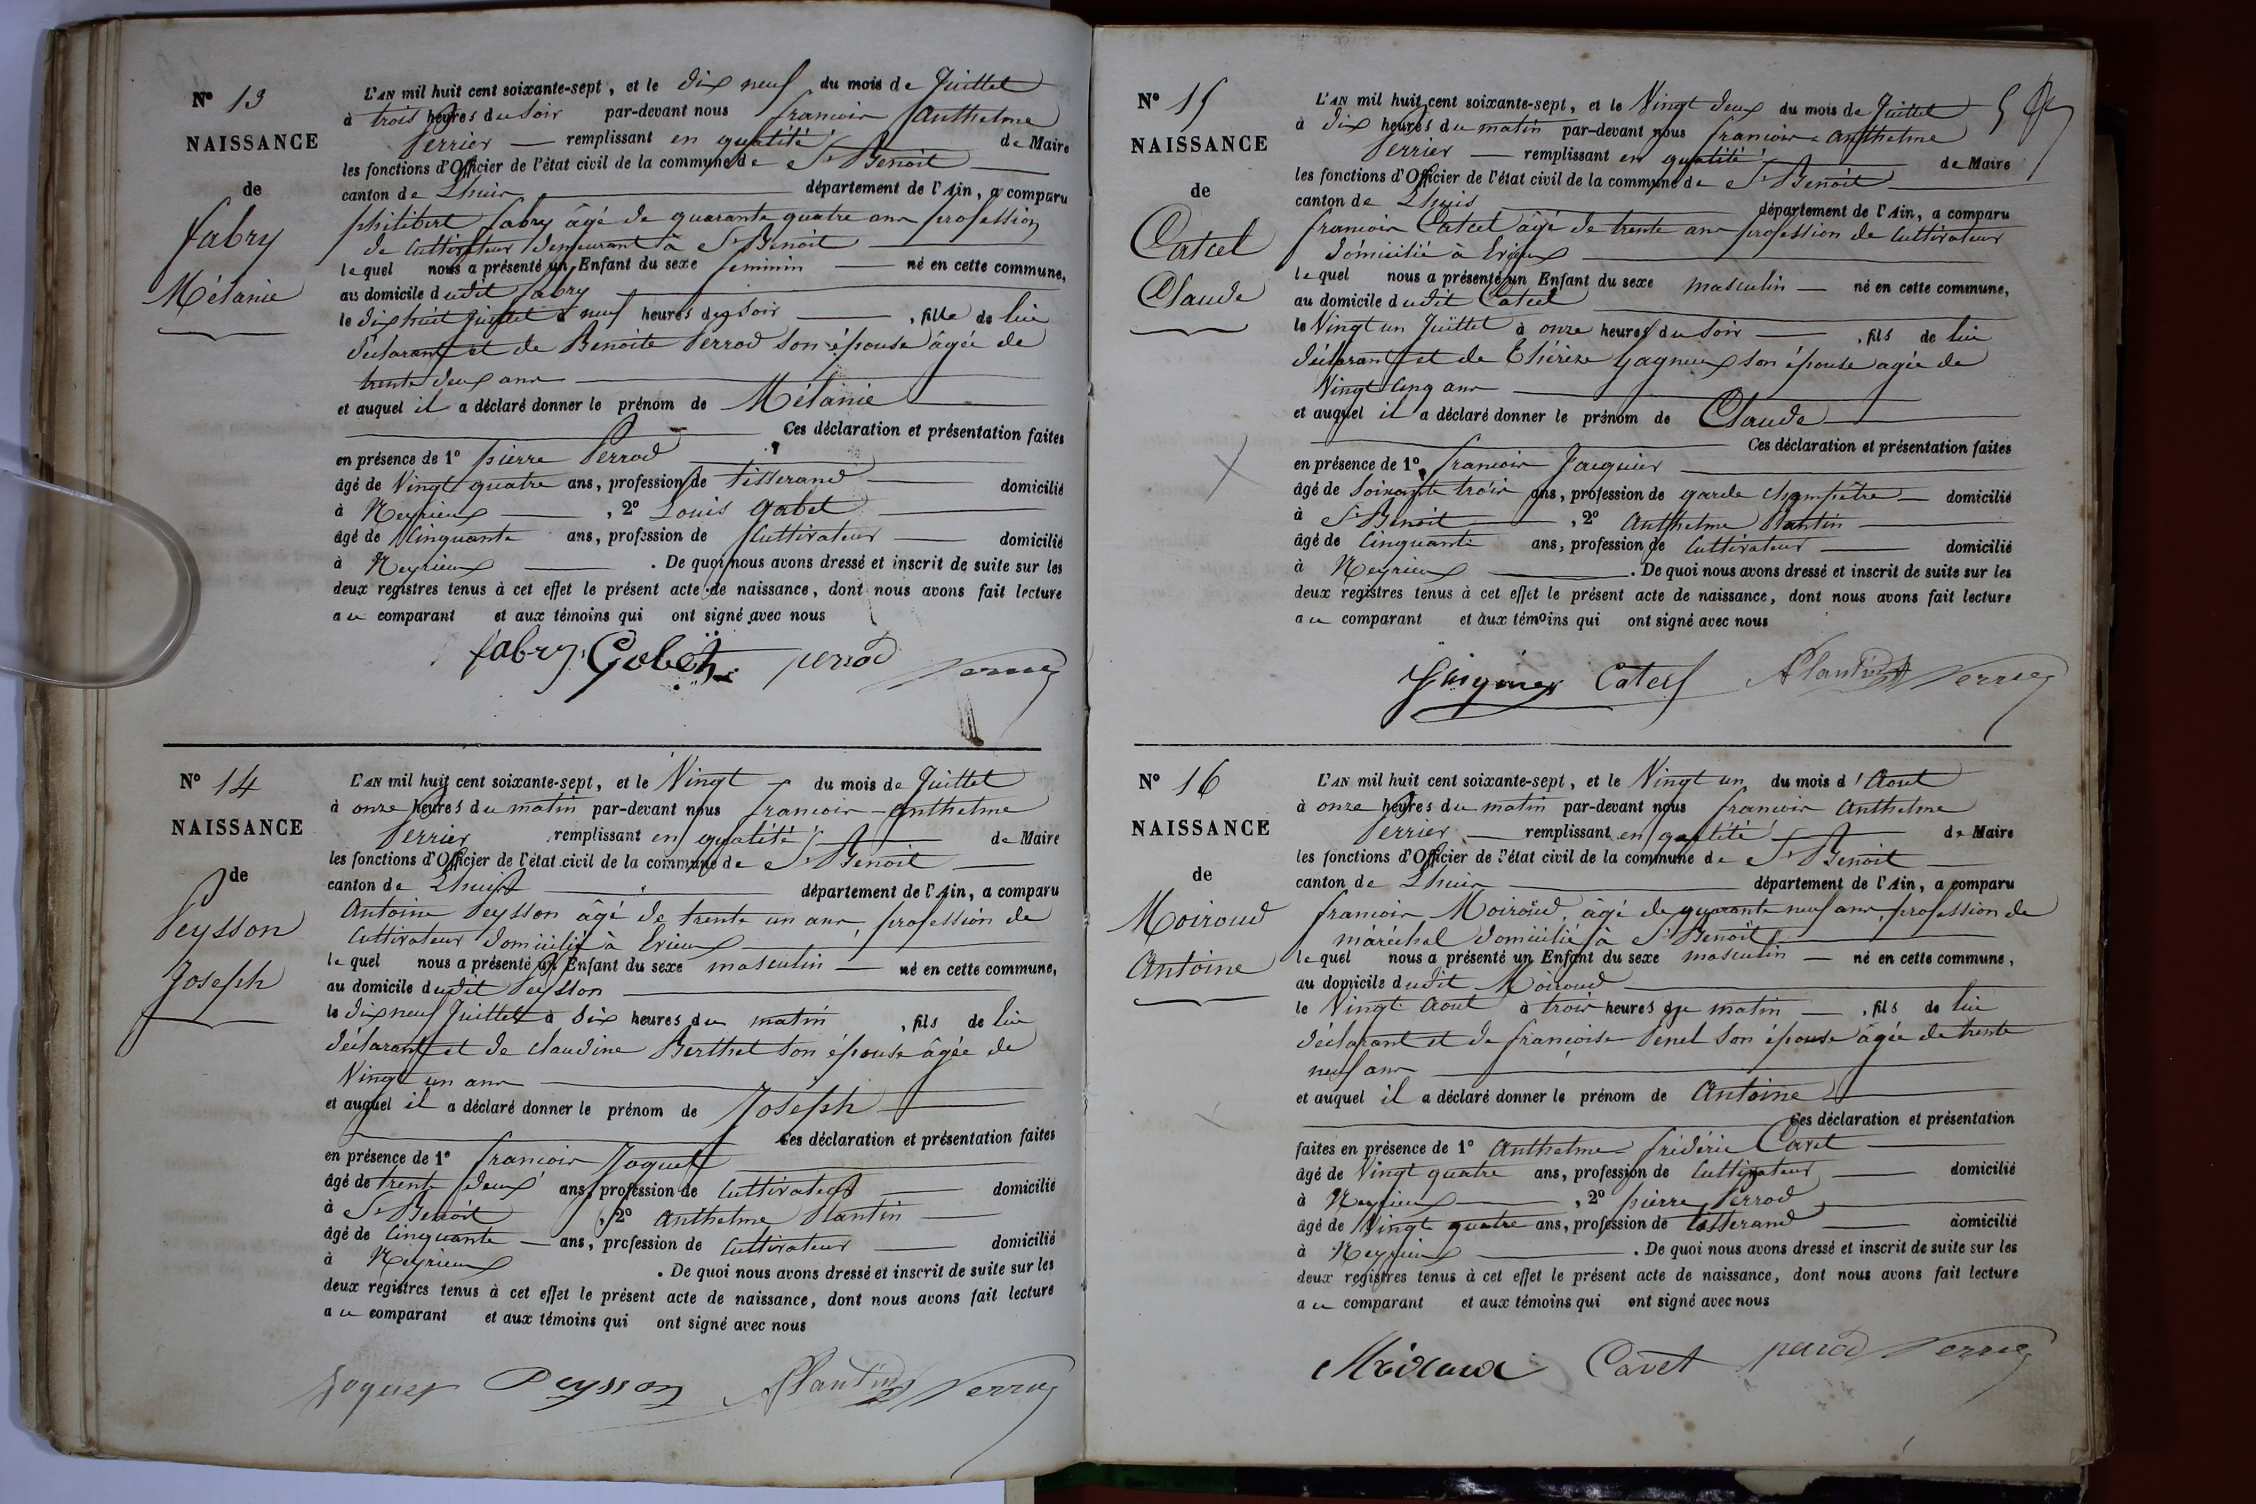 N° 13
NAISSANCE
de
fabry
Mélanie
L'AN mil huit cent soixante-sept, et le dix neuf du mois de Juillet
à trois heures du soir par-devant nous francois Anthelme
Perrier remplissant en qualité de Maire
les fonctions d'Officier de l'état civil de la commune de St Benoit
canton de Lhuis département de l'Ain, a comparu
philibert fabry âgé de quarante quatre ans profession
de Cultivateur demeurant à St Benoit
lequel nous a présenté un Enfant du sexe feminin né en cette commune,
au domicile dudit fabry
le dix huit Juillet à neuf heures du soir , fille de lui
déclarant et de Benoite Perrod son épouse âgée de
trente deux ans
et auquel il a déclaré donner le prénom de Mélanie
Ces déclaration et présentation faites
en présence de 1° pierre Perrod
âgé de Vingt quatre ans, profession de tisserand domicilié
à Neyrieux , 2° Louis Gobet
âgé de Cinquante ans, profession de Cultivateur domicilié
à Neyrieux . De quoi nous avons dressé et inscrit de suite sur les
deux registres tenus à cet effet le présent acte de naissance, dont nous avons fait lecture
au comparant et aux témoins qui ont signé avec nous
fabry Gobet perrod Perrier
N° 14
NAISSANCE
de
Peysson
Joseph
L'AN mil huit cent soixante-sept, et le Vingt du mois de Juillet
à onze heures du matin par-devant nous francois-Anthelme
Perrier remplissant en qualité de Maire
les fonctions d'Officier de l'état civil de la commune de St Benoit
canton de Lhuis département de l'Ain, a comparu
Antoine Peysson âgé de trente un ans, profession de
Cultivateur domicilié à Evieux
lequel nous a présenté un Enfant du sexe masculin né en cette commune,
au domicile dudit Peysson
le dix neuf Juillet à dix heures du matin , fils de lui
déclarant et de Claudine Berthet son épouse âgée de
Vingt un ans
et auquel il a déclaré donner le prénom de Joseph
Ces déclaration et présentation faites
en présence de 1° francois Joguet
âgé de trente deux ans, profession de Cultivateur domicilié
à St Benoit , 2° Anthelme Plantin
âgé de Cinquante ans, profession de Cultivateur domicilié
à Neyrieux . De quoi nous avons dressé et inscrit de suite sur les
deux registres tenus à cet effet le présent acte de naissance, dont nous avons fait lecture
au comparant et aux témoins qui ont signé avec nous
Joguet Peysson Plantin Perrier
N° 15
NAISSANCE
de
Catcel
Claude
L'AN mil huit cent soixante-sept, et le Vingt deux du mois de Juillet 5
à dix heures du matin par-devant nous francois-Anthelme
Perrier remplissant en qualité de Maire
les fonctions d'Officier de l'état civil de la commune de St Benoit
canton de Lhuis département de l'Ain, a comparu
francois Catcel âgé de trente ans profession de Cultivateur
domicilié à Evieux
lequel nous a présenté un Enfant du sexe masculin né en cette commune,
au domicile dudit Catcel
le Vingt un Juillet à onze heures du soir , fils de lui
déclarant et de Thérèze Gagneux son épouse agée de
Vingt Cinq ans
et auquel il a déclaré donner le prénom de Claude
Ces déclaration et présentation faites
en présence de 1° francois Juignier
âgé de soixante trois ans, profession de garde champêtre domicilié
à St Benoit , 2° Anthelme Plantin
âgé de Cinquante ans, profession de Cultivateur domicilié
à Neyrieux . De quoi nous avons dressé et inscrit de suite sur les
deux registres tenus à cet effet le présent acte de naissance, dont nous avons fait lecture
au comparant et aux témoins qui ont signé avec nous
Catcel Plantin Perrier
N° 16
NAISSANCE
de
Moiroud
Antoine
L'AN mil huit cent soixante-sept, et le Vingt un du mois d'Aout
à onze heures du matin par-devant nous francois Anthelme
Perrier remplissant en qualité de Maire
les fonctions d'Officier de l'état civil de la commune de St Benoit
canton de Lhuis département de l'Ain, a comparu
francois Moiroud, âgé de quarante neuf ans, profession de
maréchal domicilié à St Benoit
lequel nous a présenté un Enfant du sexe masculin né en cette commune,
au domicile dudit Moiroud
le Vingt Aout à trois heures du matin , fils de lui
déclarant et de francoise Penel son épouse âgée de trente
neuf ans
et auquel il a déclaré donner le prénom de Antoine
Ces déclaration et présentation
faites en présence de 1° Anthelme-frédéric Cavet
âgé de Vingt quatre ans, profession de Cultivateur domicilié
à Neyrieux , 2° pierre Perrod
âgé de Vingt quatre ans, profession de tisserand domicilié
à Neyrieux . De quoi nous avons dressé et inscrit de suite sur les
deux registres tenus à cet effet le présent acte de naissance, dont nous avons fait lecture
au comparant et aux témoins qui ont signé avec nous
Moiroud Cavet perrod Perrier